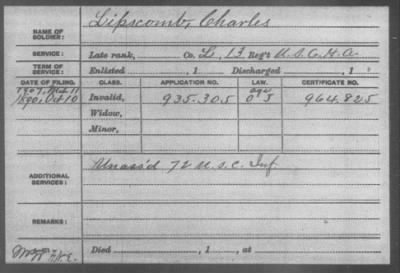 NAME OF SOLDIER: Lipscomb, Charles
SERVICE: Late rank, Co. L, 13 Reg't U.S.C.H.A.
TERM OF SERVICE: Enlisted , 1 Discharged , 1
DATE OF FILING. CLASS. APPLICATION NO. LAW. CERTIFICATE NO.
1907, Mch 11 age
1890, Oct 10 Invalid, 935.305 0 J 964.825
Widow,
Minor,
ADDITIONAL SERVICES: Unass'd 72 U.S.C. Inf
REMARKS:
Died , 1 , at